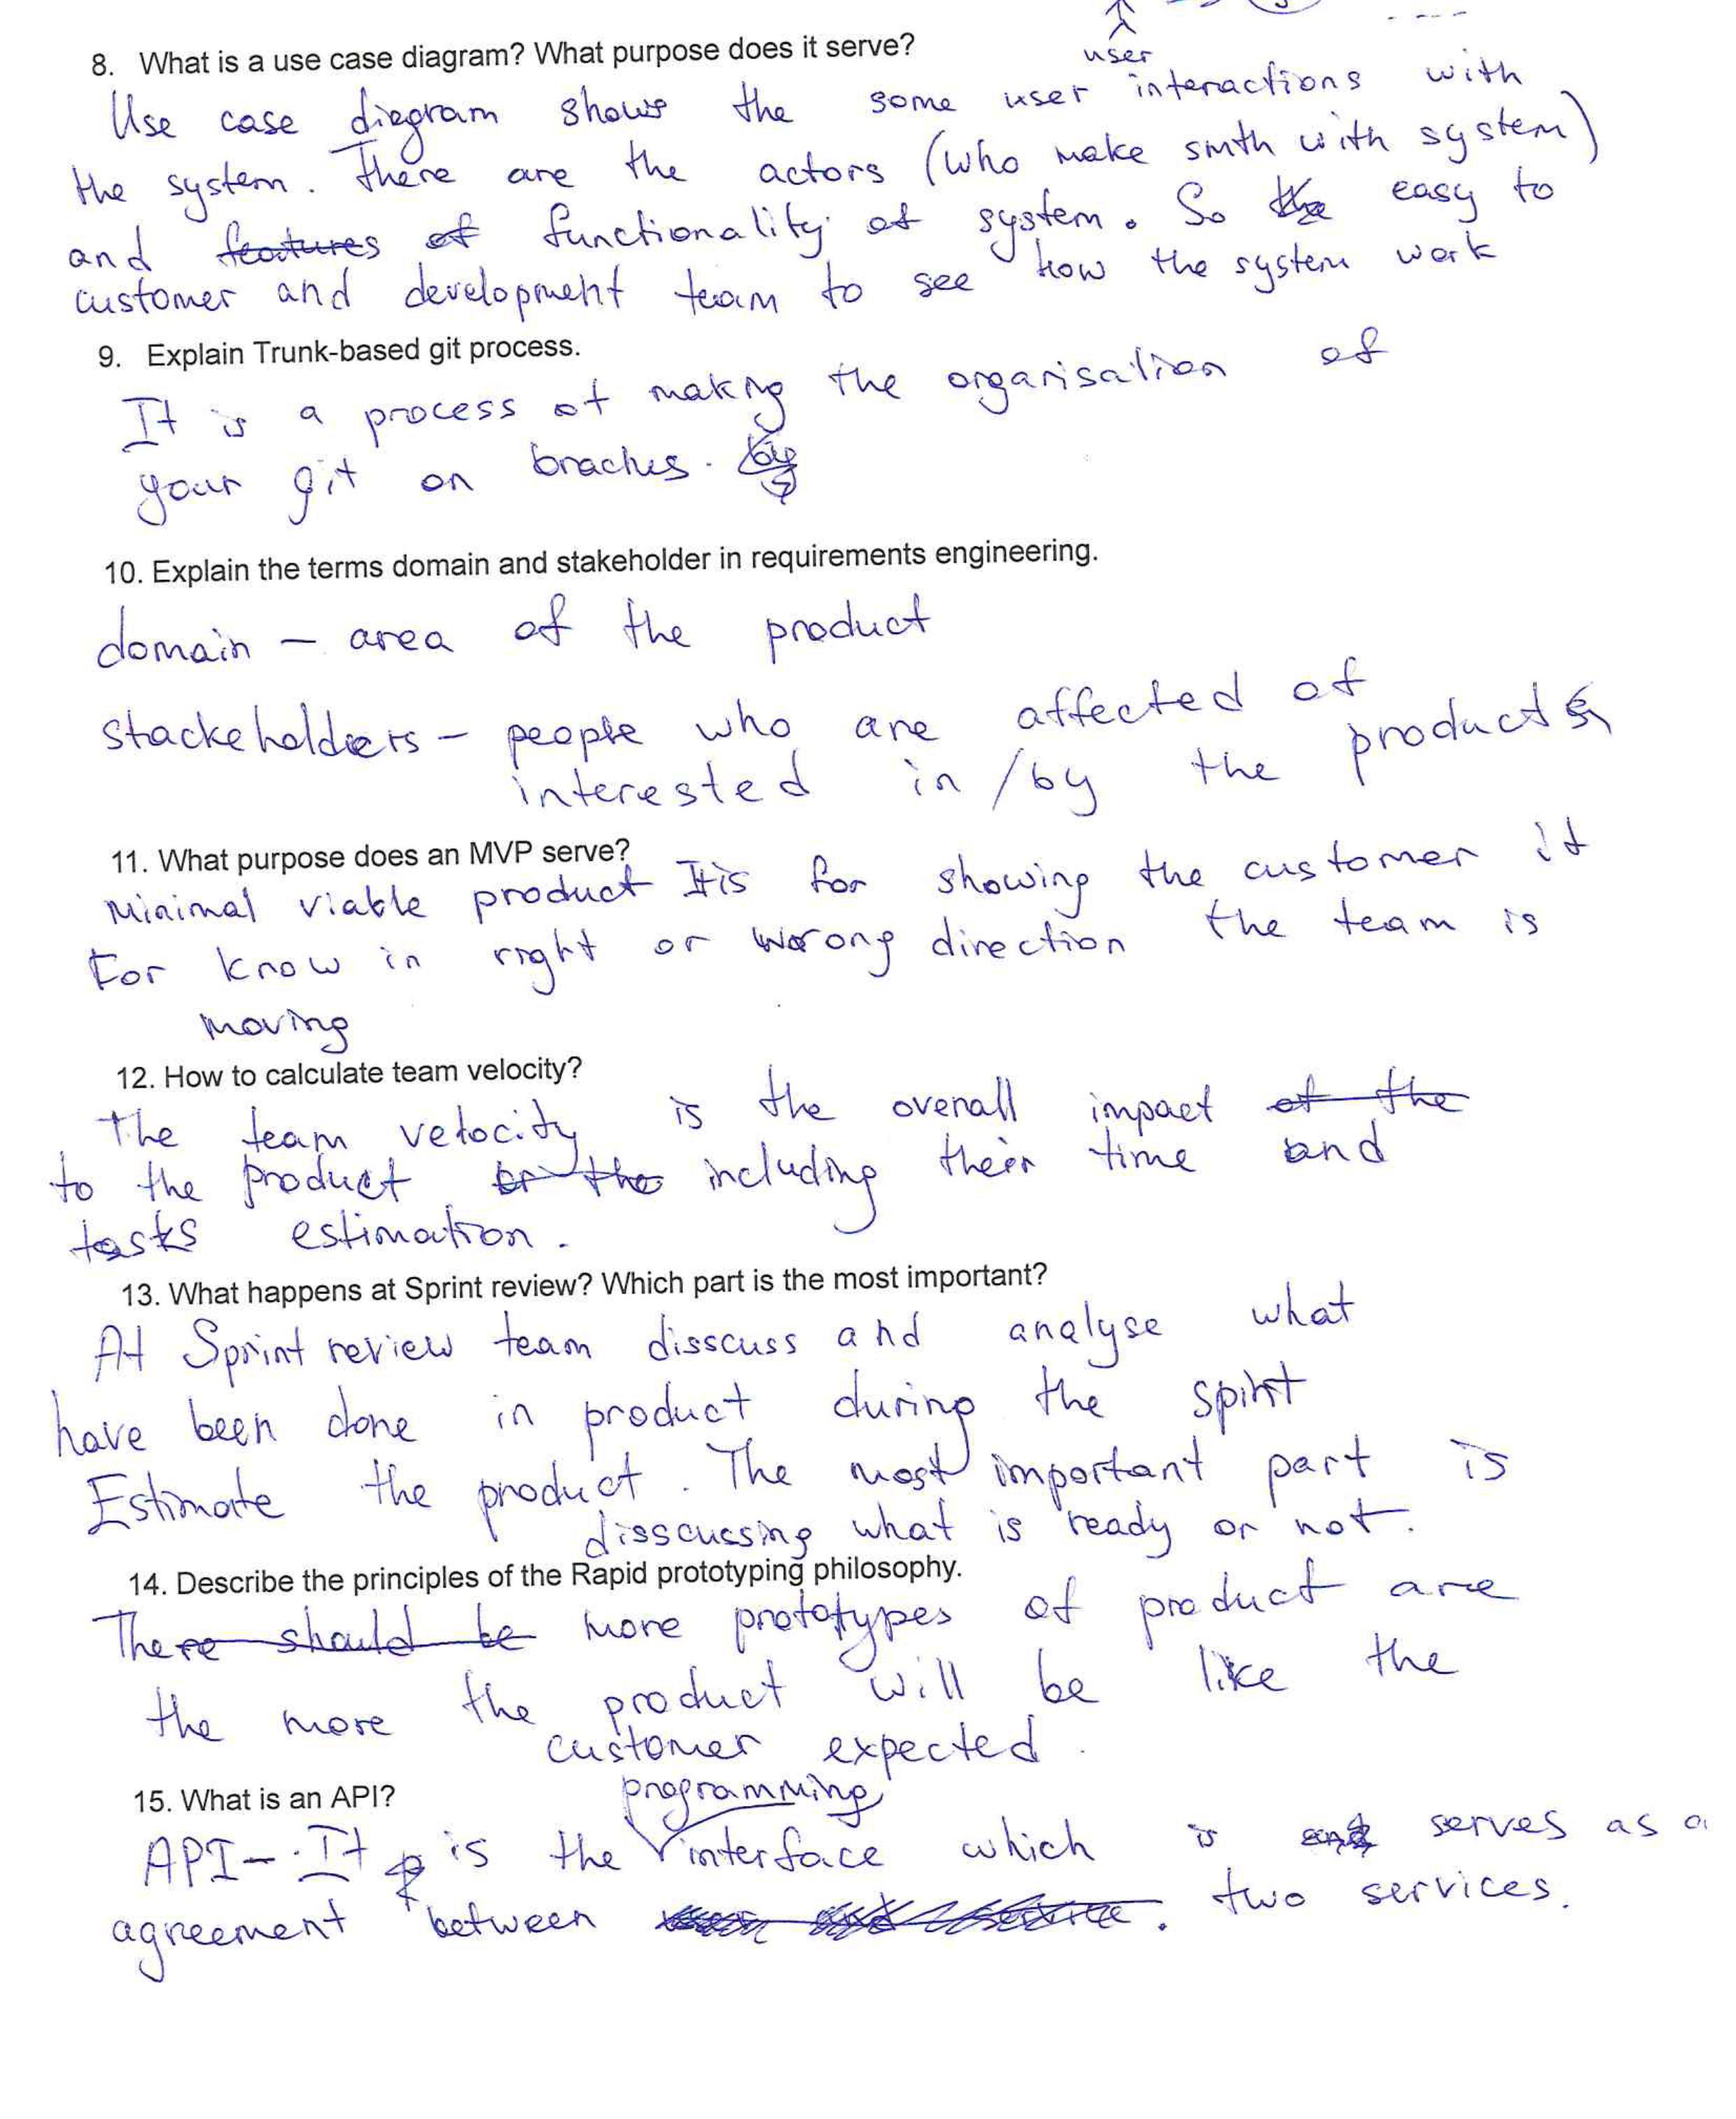 user
8. What is a use case diagram? What purpose does it serve?
Use case diegram shows the some user interactions with
the system. There are the actors (who make smth with system)
and features of functionality of system. So the easy to
customer and development team to see how the system work
9. Explain Trunk-based git process.
It is a process of making the organisation of
your git on braches. by
10. Explain the terms domain and stakeholder in requirements engineering.
domain – area of the product
stackeholders – people who are affected of
interested in /by the product
11. What purpose does an MVP serve?
Minimal viable product It is for showing the customer it
For know in right or wrong direction the team is
moving
12. How to calculate team velocity?
The team velocity is the overall impact of the
to the product or the including their time and
tasks estimation.
13. What happens at Sprint review? Which part is the most important?
At Sprint review team disscuss and analyse what
have been done in product during the spint
Estimate the product. The most important part is
disscussing what is ready or not.
14. Describe the principles of the Rapid prototyping philosophy.
There should be more prototypes of product are
the more the product will be like the
customer expected.
15. What is an API?
programming
API – It is the interface which is and serves as a
agreement between two services.